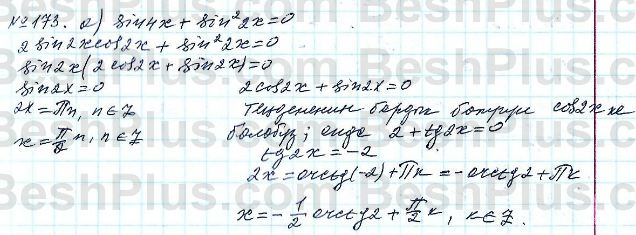 №173. а) sin4x + sin²2x = 0
2 sin2x cos2x + sin²2x = 0
sin2x (2 cos2x + sin2x) = 0
sin2x = 0
2x = πn, n ∈ Z
x = π/2 n, n ∈ Z
2 cos2x + sin2x = 0
Теңдеменин бардык бөлүгүн cos2x ке
бөлөбүз; анда 2 + tg2x = 0
tg2x = -2
2x = arctg(-2) + πk = -arctg2 + πk
x = -1/2 arctg2 + π/2 k, k ∈ Z.
BeshPlus.com